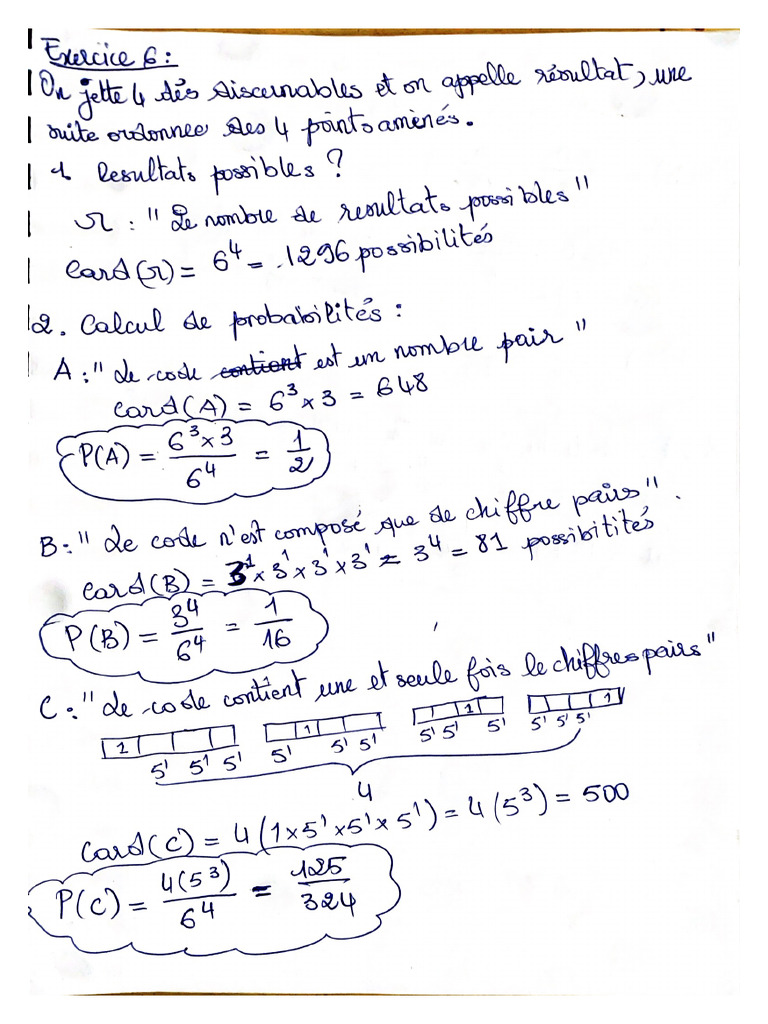 Exercice 6 :
On jette 4 dés discernables et on appelle résultat, une
suite ordonnee des 4 points amenés.
1 Resultats possibles ?
Ω : " Le nombre de resultats possibles "
Card(Ω) = 6⁴ = 1296 possibilités
2. Calcul de probabilités :
A : " Le code est un nombre pair "
Card(A) = 6³ × 3 = 648
P(A) = 6³×3 / 6⁴ = 1/2
B : " Le code n'est composé que de chiffre pairs " .
Card(B) = 3¹ × 3¹ × 3¹ × 3¹ = 3⁴ = 81 possibitités
P(B) = 3⁴ / 6⁴ = 1/16
C : " Le code contient une et seule fois le chiffres pairs "
1 1 1 1
5¹ 5¹ 5¹ 5¹ 5¹ 5¹ 5¹ 5¹ 5¹ 5¹ 5¹ 5¹
4
Card(C) = 4(1×5¹×5¹×5¹) = 4(5³) = 500
P(C) = 4(5³) / 6⁴ = 125/324